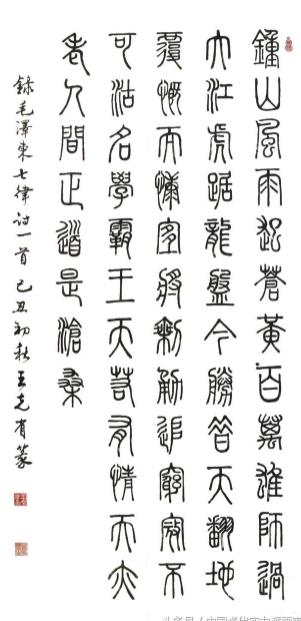 鐘山風雨起蒼黃百萬雄師過
大江虎踞龍盤今勝昔天翻地
覆慨而慷宜將剩勇追窮寇不
可沽名學霸王天若有情天亦
老人間正道是滄桑
錄毛澤東七律詩一首 己丑初秋 王克有篆